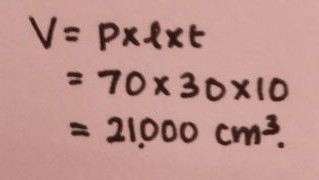 V = p x l x t
= 70 x 30 x 10
= 21.000 cm³.